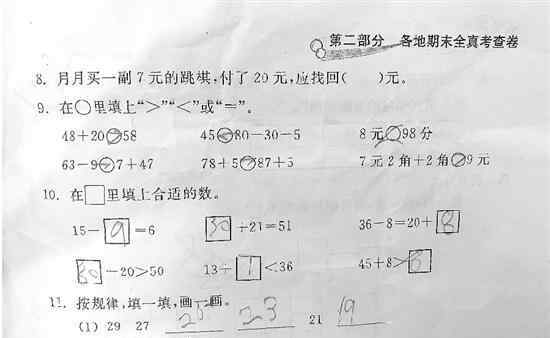 第二部分 各地期末全真考查卷
8. 月月买一副7元的跳棋,付了20元,应找回( )元。
9. 在○里填上“>”“<”或“=”。
48+20○58 45○80-30-5 8元○98分
63-9○7+47 78+5○87+5 7元2角+2角○9元
10. 在□里填上合适的数。
15-9=6 30+21=51 36-8=20+8
80-20>50 13+1<36 45+8>8
11. 按规律,填一填,画一画。
(1) 29 27 25 23 21 19